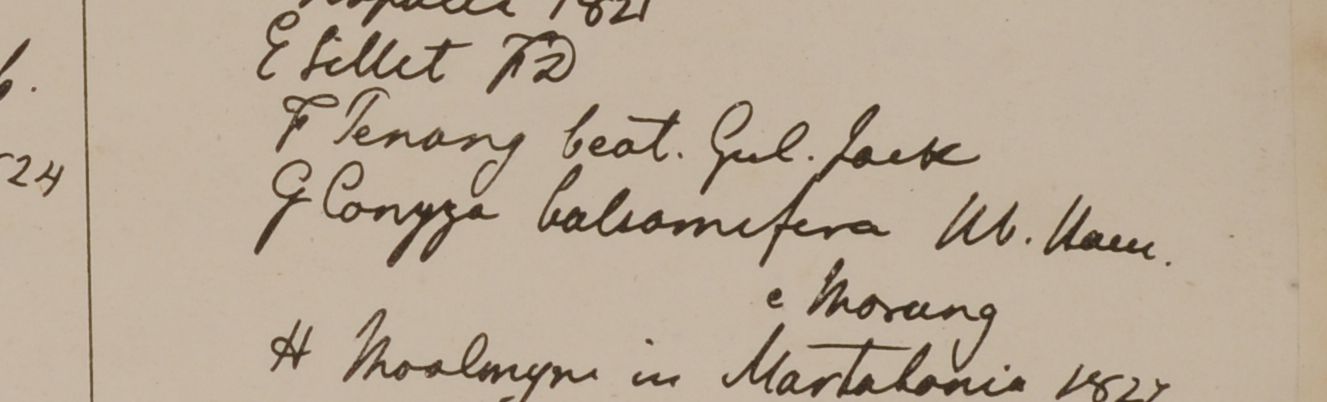 Napalia 1821
E Sillet FD
F Penang beat. Gul. Jack
24
G Conyza balsamifera Hb. Ham.
e Morung
H Moolmyne in Martabania 1827